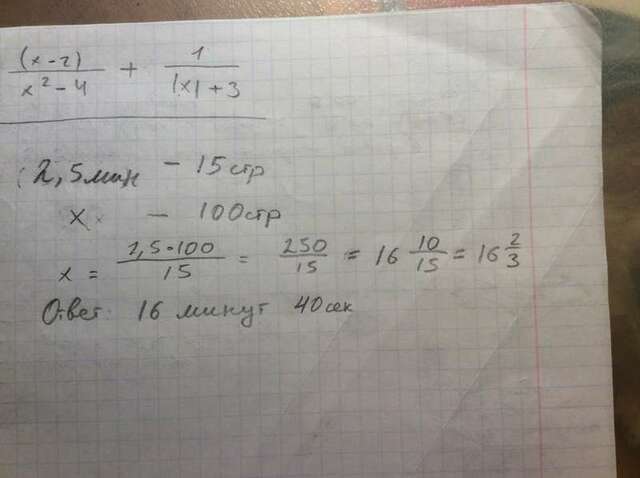 (x-2)/x²-4 + 1/|x|+3
2,5мин - 15стр
x - 100стр
x = 2,5·100/15 = 250/15 = 16 10/15 = 16 2/3
Ответ: 16 минут 40сек